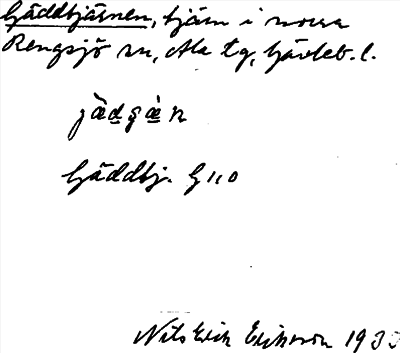 Gäddtjärnen, tjärn i norra
Rengsjö sn, Ala tg, Gävleb. l.
Gäddtj. G110
Nils Erik Eriksson 1933